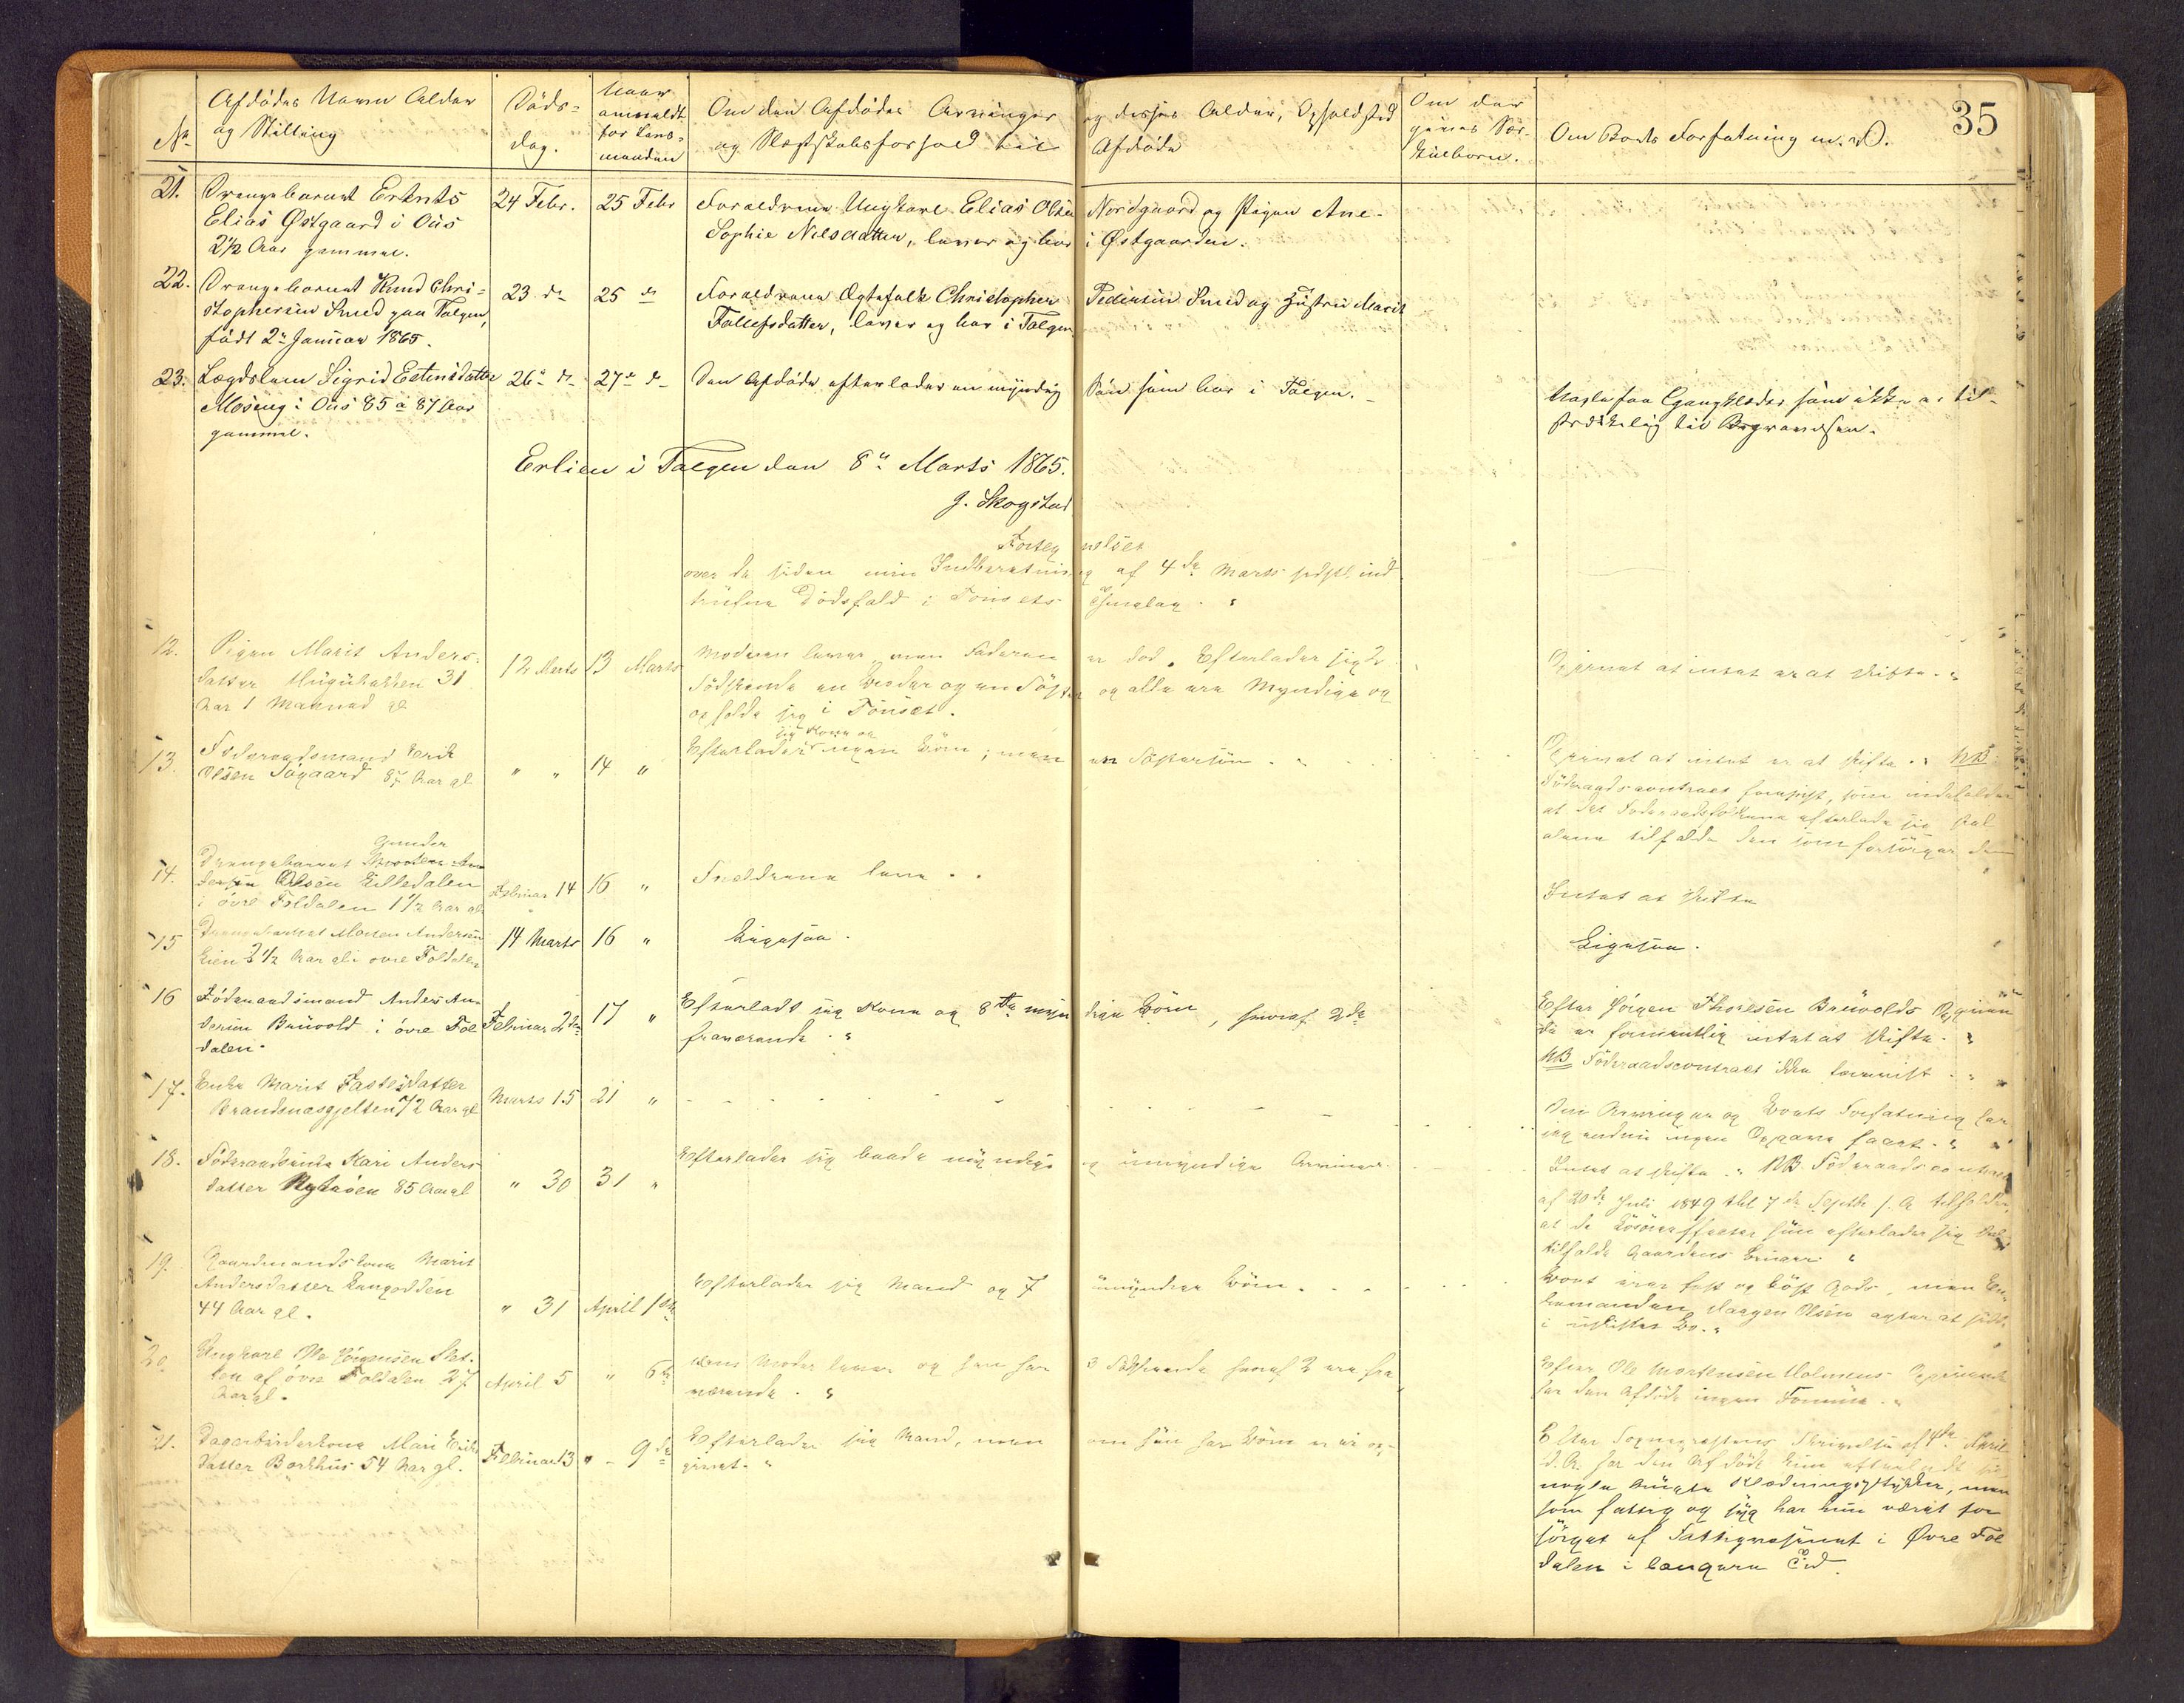 35
No
Afdødes Navn Alder
og Stilling
Døds-
dag.
Naar
anmeldt
for Lens-
manden
Om den Afdødes Arvinger og disses Alder, Opholdsted
og Slægtskabsforhold til Afdøde
Om der
gives Sær-
kulborn.
Om Boets Forfatning m. V.
21. Drengebarnet
Elias Østgaard i Øus
2½ Aar gammel.
24 Febr.
25 Febr
Forældrene Ungkarl Elias Olsen Nordgaard og Pigen Ane
Sophie Nilsdatter, lever og bor i Østgaarden.
22. Drengebarnet Knud Chri-
stophersen Smed paa Tolgen,
født 2n Januar 1865.
23 do
25 do
Forældrene Ægtefolk Christopher Pedersen Smed og Hustru Marit
Tollefsdatter, lever og bor i Tolgen
23. Lægdslem Sigrid Estensdatter
Moseng i Øus 85 a 87 Aar
gammel.
26de do
27de do
Den Afdøde efterlader en myndig Søn som bor i Tolgen.
Nogle faa Gangklæder som ikke er til-
strækkelig til Begravelsen.
Erlien i Tolgen den 8de Marts 1865.
J. Skogstad
Fortegnelse
over de siden min Indberetning af 4de Marts sidstl. ind
trufne Dødsfald i Tønsets Thinglag.
12. Pigen Marit Anders-
datter 31
Aar 1 Maaned gl
12 Marts
13 Marts
Moderen lever men Faderen er død. Efterlader sig 2
Sødskende en Broder og en Søster og alle ere Myndige og
opholde sig i Tønset.
Opgivet at intet er at skifte.
13. Føderaadsmand Erik
Olsen Søgaard 87 Aar gl
" "
14 "
sig Kone og
Efterlader ingen Børn; men en Søstersøn.
Opgivet at intet er at skifte. NB.
Föderaadscontract forevist, som indeholder
at det Föderaadsfolkene efterlade sig skal
alene tilfalde den som forsørger dem
Gunder
14. Drengebarnet
Olsen Lilledalen
i övre Foldalen 1½ Aar gl
Februar 14
16 "
Forældrene leve.
Intet at skifte
15 Drengebarnet Morten Andersen
Lien 3½ Aar gl i övre Foldalen
14 Marts
16 "
Ligesaa.
Ligesaa.
16 Föderaadsmand Anders An-
dersen Brüvold i övre Fol
dalen.
Februar 2den
17 "
Efterladt sig Kone og 8te myndige Börn, hvoraf 2de
fraværende.
Efter Jörgen Thoresen Brüvolds Opgivende
er formentlig intet at skifte.
NB Föderaadscontract ikke forevist.
17. Enke Marit Jastersdatter
72 Aar gl
Marts 15
21 "
Om Arvinger og Boets Forfatning har
jeg endnu ingen Opgave faaet.
18. Föderaadsenke Kari Anders
datter Nytröen 85 Aar gl
" 30
31 "
Efterlader sig baade myndige og umyndige Arvinger.
Intet at skifte. NB Föderaadscontract
af 20de Juli 1849 thl 7de Septbr s. A. tilholder,
at de Lösöreffecter hun efterlader sig skal
tilfalde Gaardens Bruger.
19. Gaardmandskone Marit
Andersdatter Langodden
44 Aar gl.
" 31
April 1ste
Efterlader sig Mand og 7 umyndige Börn.
Boet eier fast og löst Gods, men En-
kemanden Haagen Olsen agter at sidde
i uskiftet Bo.
20. Ungkarl Ole Jörgensen
af övre Foldalen 27
Aar gl.
April 5
" 6te
Hans Moder lever og han har 3 Södskende hvoraf 2 ere fra
værende.
Efter Ole Mortensen Holmens Opgivende
har den Afdöde ingen Formue.
21. Dagarbeiderkone Mari Eriks
datter Borkhus 54 Aar gl.
Februar 13
" 9de
Efterlader sig Mand, men om hun har Börn er ei op-
givet.
Efter Sognepræstens Skrivelse af 4de April
d. A. har den Afdöde kun efterladt sig
nogle ringe Klædningsstykker, men
som fattig og syg har hun været for
sörget af Fattigvæsenet i Øvre Fol
dalen i længere Tid.